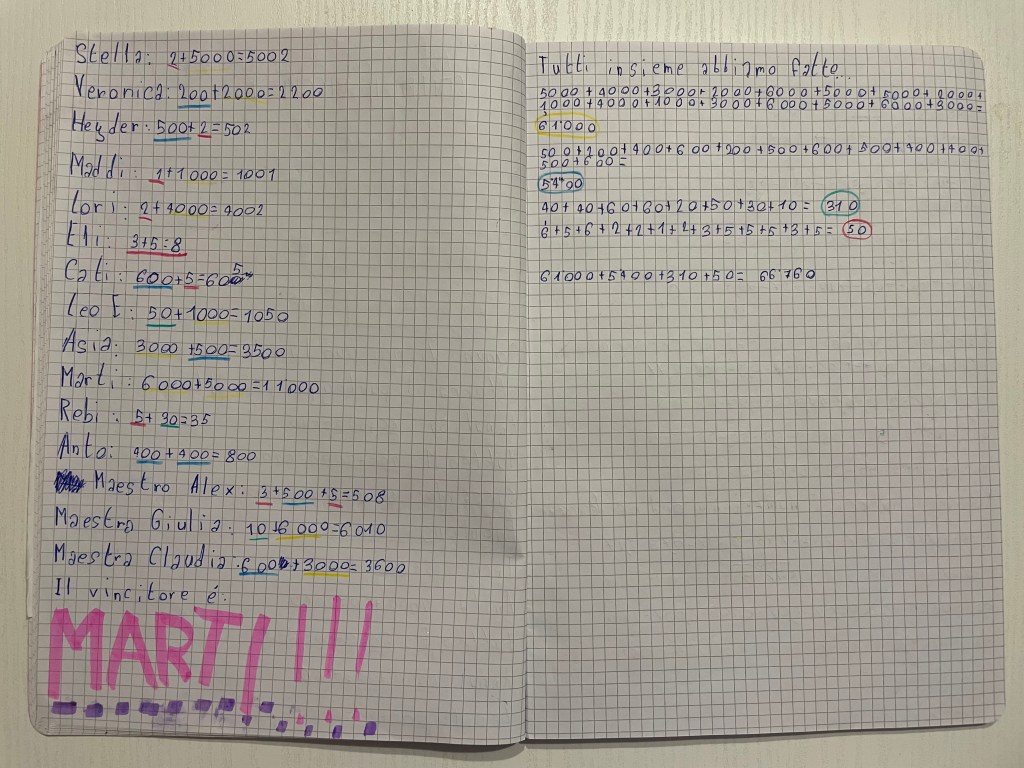 Stella: 2+5000=5002
Veronica: 200+2000=2200
Heyder: 500+2=502
Maddi: 1+1000=1001
Lori: 2+4000=4002
Eti: 3+5=8
Cati: 600+5=605
Leo E: 50+1000=1050
Asia: 3000+500=3500
Marti: 6000+5000=11000
Rebi: 5+30=35
Anto: 400+400=800
Maestro Alex: 3+500+5=508
Maestra Giulia: 10+6000=6010
Maestra Claudia: 600+3000=3600
Il vincitore é:
MARTI!!!
Tutti insieme abbiamo fatto...
5000+4000+3000+2000+6000+5000+5000+2000+
1000+4000+1000+3000+6000+5000+6000+3000=
61'000
500+200+400+600+200+500+600+500+400+400+
500+600=
5400
40+40+60+60+20+50+30+10= 310
6+5+6+2+2+1+2+3+5+5+5+3+5= 50
61000+5400+310+50= 66'760